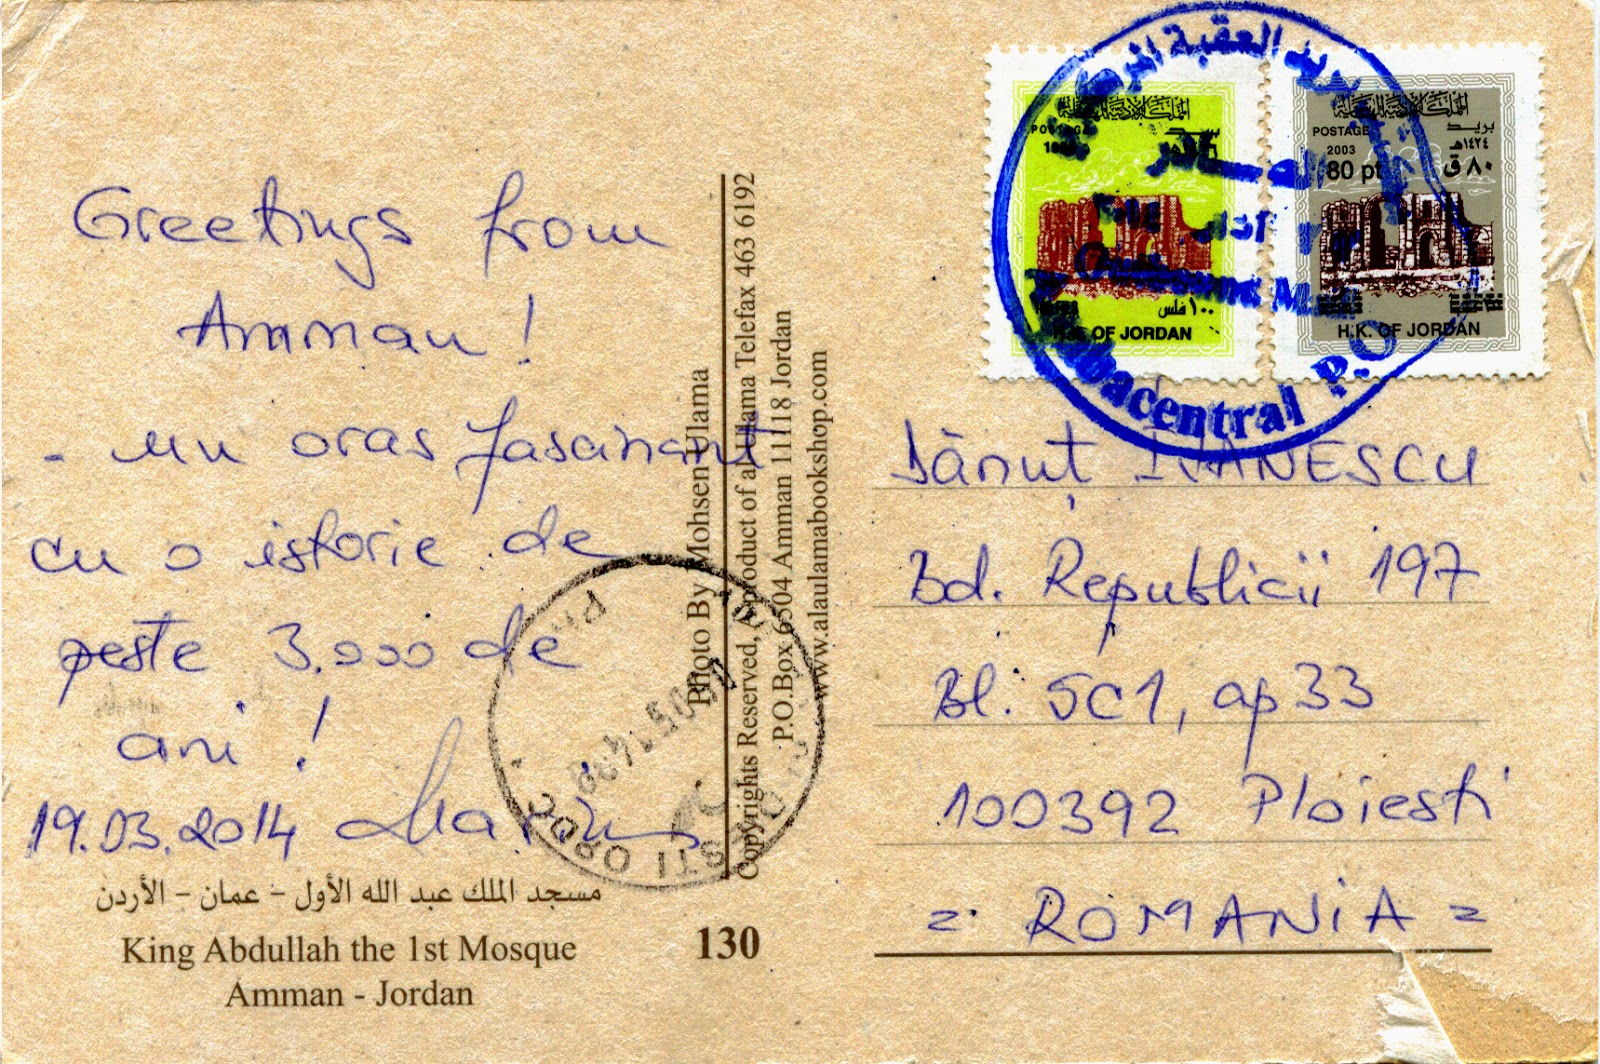 Greetings from
Amman!
- un oras fascinant
cu o istorie de
peste 3.000 de
ani!
19.03.2014 Marius
مسجد الملك عبد الله الأول - عمان - الأردن
King Abdullah the 1st Mosque
Amman - Jordan
130
Photo By Mohsen Ullama
Copyrights Reserved, A product of al Ulama Telefax 463 6192
P.O.Box 6504 Amman 11118 Jordan
www.alaulamabookshop.com
المملكة الأردنية الهاشمية
١٠٠ فلس
H.K. OF JORDAN
المملكة الأردنية الهاشمية
POSTAGE بريد
2003 ١٤٢٤هـ
80 pt ٨٠ ق
H.K. OF JORDAN
بريد العقبة المركزي
الصادر
Outbound Mail
Aqabacentral P.O
Dănuț IVANESCU
Bd. Republicii 197
Bl. 5C1, ap 33
100392 Ploiesti
= ROMANiA =